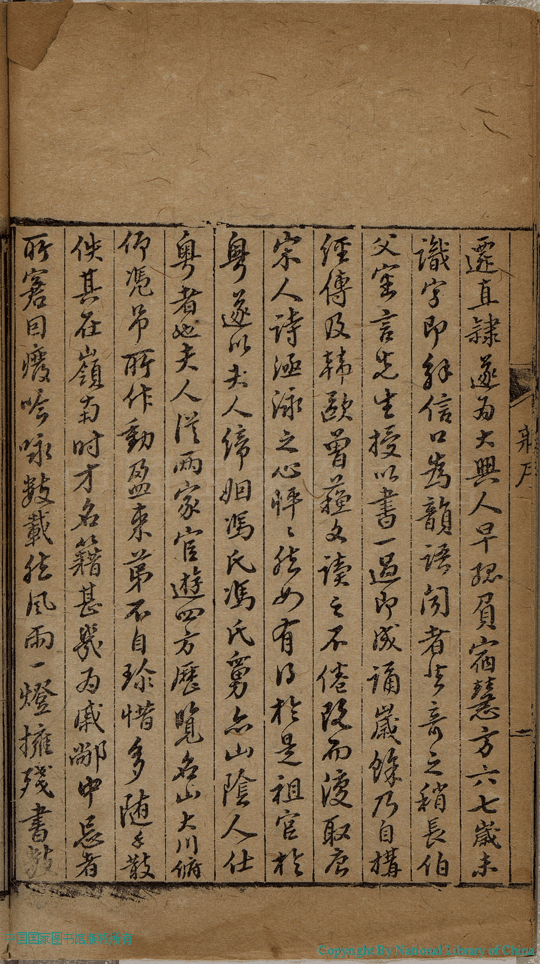 遷直隸遂為大興人早孤負宿慧方六七歲未
識字即解信口為韻語聞者皆奇之稍長伯
父密言先生授以書一過即成誦歲餘乃自構
經傳及韓歐曾蘇文讀之不倦既而復取唐
宋人詩涵泳之心怦〻然如有得於是祖官於
粵遂以夫人締姻馮氏馮氏舅亦山陰人仕
粵者也夫人從兩家官遊四方歷覽名山大川俯
仰憑吊所作動盈束第不自珍惜多隨手散
佚其在嶺南時才名籍甚幾為戚鄰中忌者
所窘因廢吟咏數載然風雨一燈擁殘書數
序
一
中国国家图书馆
Copyright By National Library of China